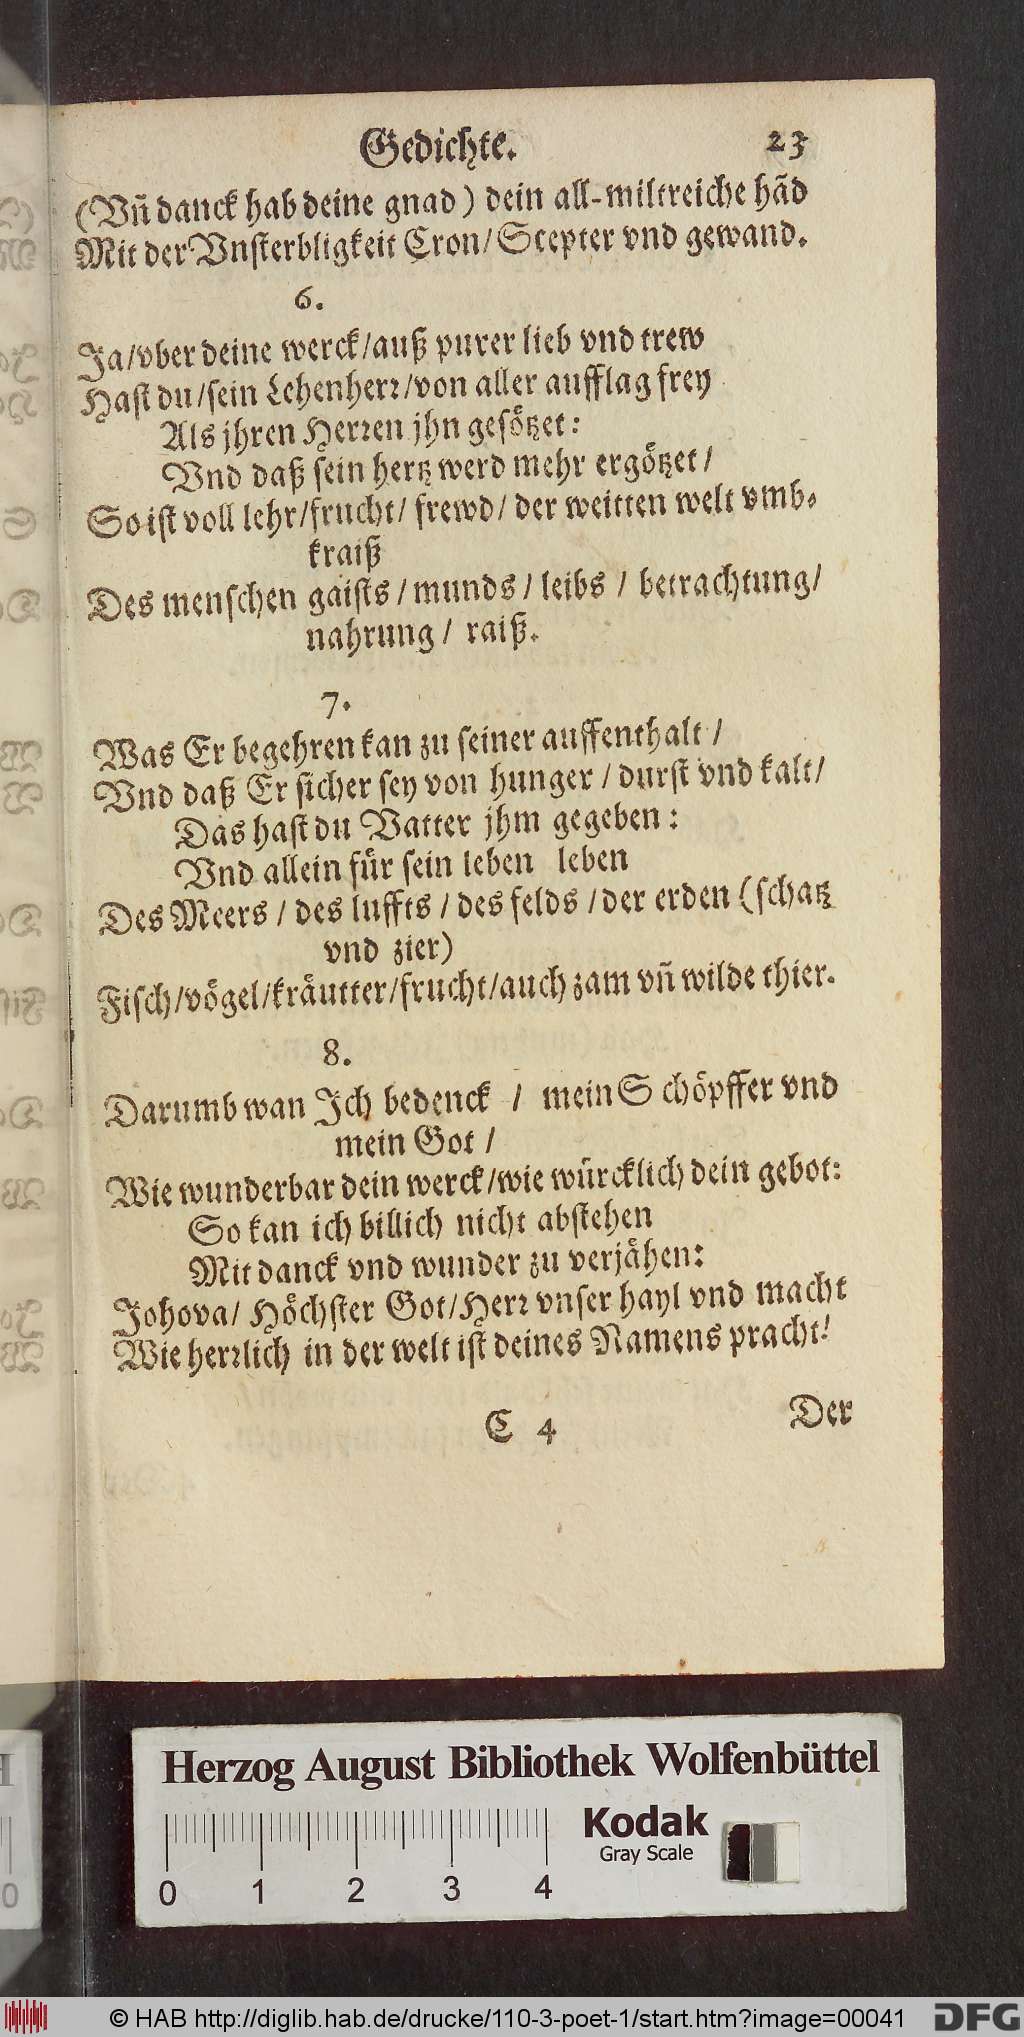 Gedichte. 23
(Vñ danck hab deine gnad) dein all-miltreiche hãd
Mit der Vnsterbligkeit Cron/ Scepter vnd gewand.
6.
Ja/vber deine werck/auß purer lieb vnd trew
Hast du/sein Lehenherr/von aller aufflag frey
Als jhren Herren jhn gesötzet:
Vnd daß sein hertz werd mehr ergötzet/
So ist voll lehr/frucht/ frewd/ der weitten welt vmb-
kraiß
Des menschen gaists/munds/leibs/ betrachtung/
nahrung/ raiß.
7.
Was Er begehren kan zu seiner auffenthalt/
Vnd daß Er sicher sey von hunger/durst vnd kalt/
Das hast du Vatter jhm gegeben:
Vnd allein für sein leben leben
Des Meers/ des luffts/ des felds/der erden (schatz
vnd zier)
Fisch/vögel/kräutter/frucht/auch zam vñ wilde thier.
8.
Darumb wan Ich bedenck/ mein Schöpffer vnd
mein Got/
Wie wunderbar dein werck/wie würcklich dein gebot:
So kan ich billich nicht abstehen
Mit danck vnd wunder zu verjähen:
Johova/ Höchster Got/Herr vnser hayl vnd macht
Wie herrlich in der welt ist deines Namens pracht!
C 4 Der
Herzog August Bibliothek Wolfenbüttel
Kodak
Gray Scale
0 1 2 3 4
© HAB http://diglib.hab.de/drucke/110-3-poet-1/start.htm?image=00041
DFG